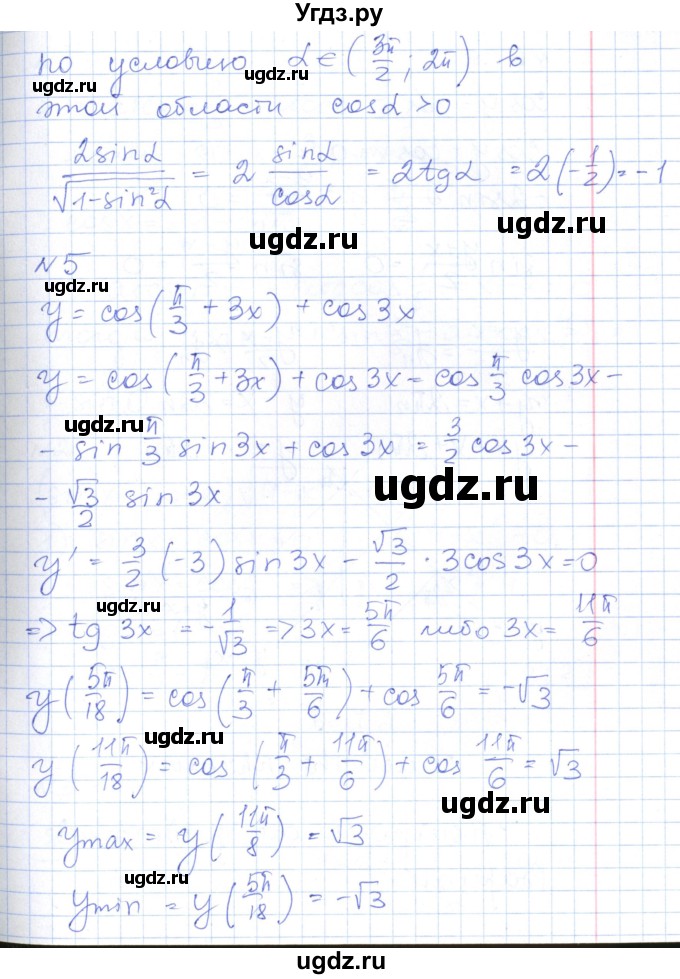 Угдз.ру
по условию α∈(3π/2; 2π) в
ugdz.ru ugdz.ru
этой области cosα>0
2sinα/√(1-sin²α) = 2 sinα/cosα = 2tgα = 2(-1/2) = -1
ugdz.ru ugdz.ru
№5
ugdz.ru
y = cos(π/3 + 3x) + cos 3x
y = cos(π/3 + 3x) + cos 3x = cos π/3 cos 3x -
ugdz.ru
- sin π/3 sin 3x + cos 3x = 3/2 cos 3x -
ugdz.ru
- √3/2 sin 3x
y' = 3/2 (-3) sin 3x - √3/2 · 3cos 3x = 0
ugdz.ru
=> tg 3x = -1/√3 => 3x = 5π/6 либо 3x = 11π/6
y(5π/18) = cos(π/3 + 5π/6) + cos 5π/6 = -√3
ugdz.ru
y(11π/18) = cos(π/3 + 11π/6) + cos 11π/6 = √3
ugdz.ru
ymax = y(11π/8) = √3
ugdz.ru
ymin = y(5π/18) = -√3
ugdz.ru